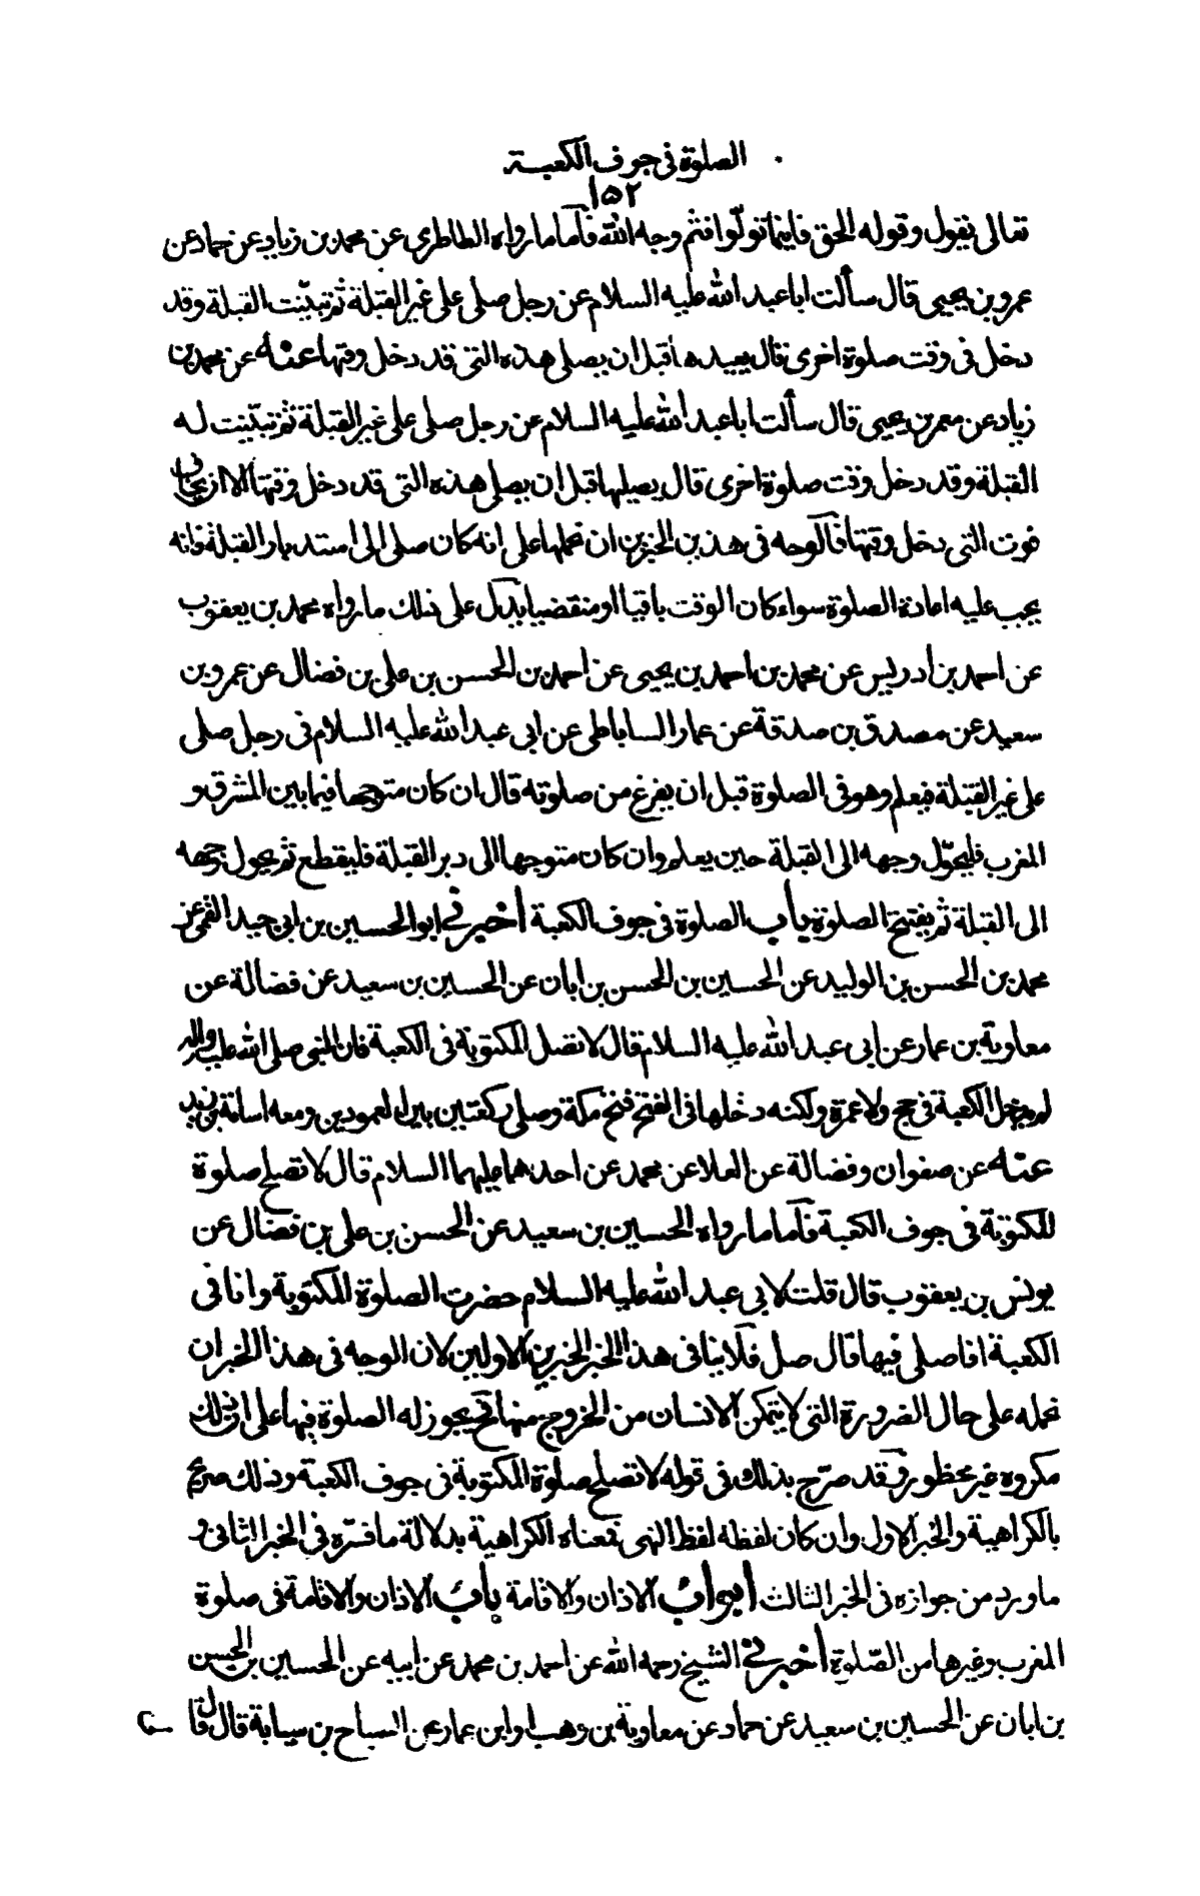 الصلوة في جوف الكعبة
١٥٢
تعالى يقول وقوله الحق فاينما تولّوا فثم وجه الله فأما ما رواه الطاطري عن محمد بن زياد عن حماد عن
عمرو بن يحيى قال سألت ابا عبد الله عليه السلام عن رجل صلى على غير القبلة ثم تبيّنت القبلة وقد
دخل في وقت صلوة اخرى قال يعيدها قبل ان يصلى هذه التي قد دخل وقتها عنه عن محمد بن
زياد عن معمر بن يحيى قال سألت ابا عبد الله عليه السلام عن رجل صلى على غير القبلة ثم تبيّنت له
القبلة وقد دخل وقت صلوة اخرى قال يصليها قبل ان يصلى هذه التي قد دخل وقتها الا ان يخاف
فوت التي دخل وقتها فالوجه في هذين الخبرين ان نحملها على انه كان صلى الى استدبار القبلة فانه
يجب عليه اعادة الصلوة سواء كان الوقت باقيا او منقضيا يدل على ذلك ما رواه محمد بن يعقوب
عن احمد بن أدريس عن محمد بن احمد بن يحيى عن احمد بن الحسن بن على بن فضال عن عمرو بن
سعيد عن مصدق بن صدقة عن عمار الساباطي عن ابى عبد الله عليه السلام في رجل صلى
على غير القبلة فيعلم وهو في الصلوة قبل ان يفرغ من صلوته قال ان كان متوجها فيما بين المشرق و
المغرب فليحوّل وجهه الى القبلة حين يعلم وان كان متوجها الى دبر القبلة فليقطع ثم يحول وجهه
الى القبلة ثم يفتتح الصلوة باب الصلوة في جوف الكعبة أخبرني ابو الحسين بن ابى جيد القمى عن
محمد بن الحسن بن الوليد عن الحسين بن الحسن بن ابان عن الحسين بن سعيد عن فضالة عن
معاوية بن عمار عن ابى عبد الله عليه السلام قال لا تصل المكتوبة في الكعبة فان النبي صلى الله عليه واله
لم يدخل الكعبة في حج ولا عمرة ولكنه دخلها في الفتح فتح مكة وصلى ركعتين بين العمودين ومعه اسامة بن زيد
عنه عن صفوان وفضالة عن العلا عن محمد عن احدهما عليهما السلام قال لا تصلح صلوة
المكتوبة في جوف الكعبة فأما ما رواه الحسين بن سعيد عن الحسن بن على بن فضال عن
يونس بن يعقوب قال قلت لابي عبد الله عليه السلام حضرت الصلوة المكتوبة وانا في
الكعبة افاصلى فيها قال صل فلا ينافي هذا الخبر الخبرين الاولين لان الوجه في هذا الخبر ان
نحمله على حال الضرورة التي لا يتمكن الانسان من الخروج منها فح يجوز له الصلوة فيها على ان ذلك
مكروه غير محظور وقد صرّح بذلك في قوله لا تصلح صلوة المكتوبة في جوف الكعبة وذلك صريح
بالكراهية والخبر الاول وان كان لفظه لفظ النهى فمعناه الكراهية بدلالة ما فسّره في الخبر الثانى و
ما ورد من جوازه في الخبر الثالث أبواب الاذان والاقامة باب الاذان والاقامة في صلوة
المغرب وغيرها من الصلوة أخبرني الشيخ رحمه الله عن احمد بن محمد عن ابيه عن الحسين بن الحسن
بن ابان عن الحسين بن سعيد عن حماد عن معاوية بن وهب او ابن عمار عن الصباح بن سيابة قال قال